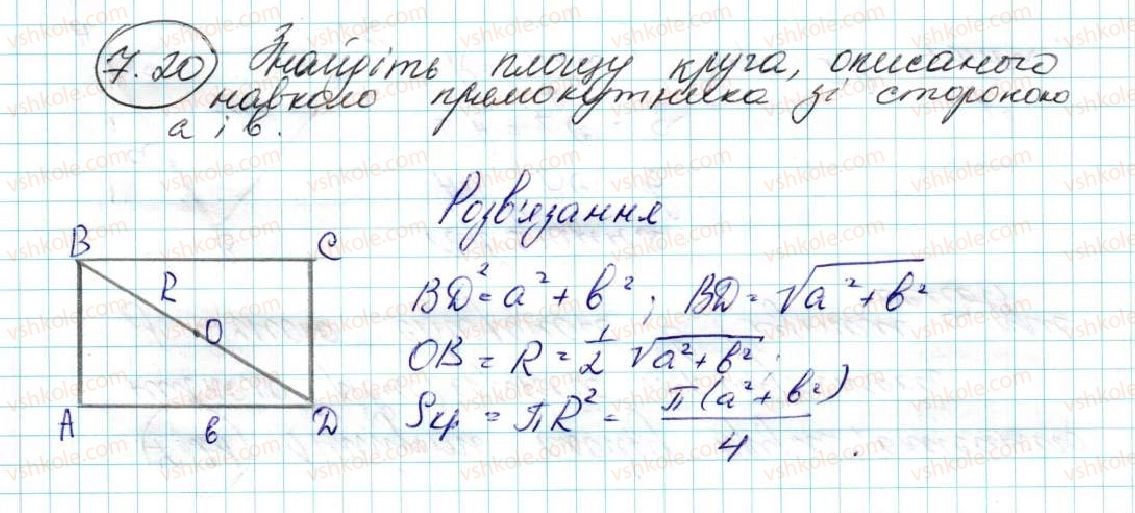 7.20 Знайдіть площу круга, описаного
навколо прямокутника зі стороною
a і b.
Розв'язання
B C
R
O
A b D
BD² = a² + b²; BD = √a² + b²
OB = R = 1/2 √a² + b²;
Sкр = πR² = π(a² + b²)/4.